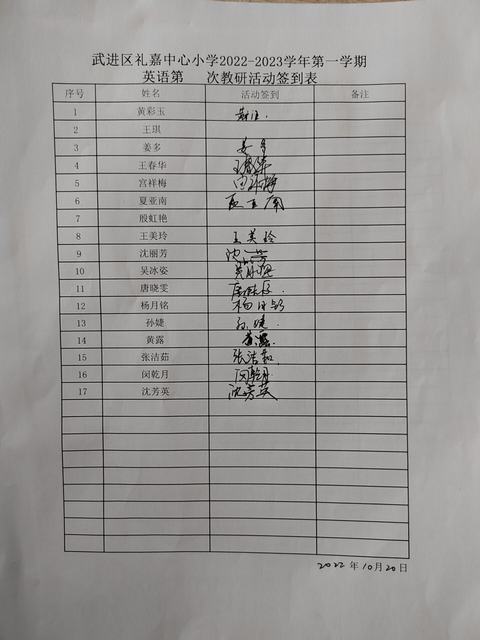 武进区礼嘉中心小学2022-2023学年第一学期
英语第 次教研活动签到表
序号 姓名 活动签到 备注
1 黄彩玉
2 王琪
3 姜多 姜多
4 王春华 王春华
5 宫祥梅 宫祥梅
6 夏亚南 夏亚南
7 殷虹艳
8 王美玲 王美玲
9 沈丽芳 沈丽芳
10 吴冰姿 吴冰姿
11 唐晓雯 唐晓雯
12 杨月铭 杨月铭
13 孙婕 孙婕
14 黄露 黄露
15 张洁茹 张洁茹
16 闵乾月 闵乾月
17 沈芳英 沈芳英
2022年10月20日